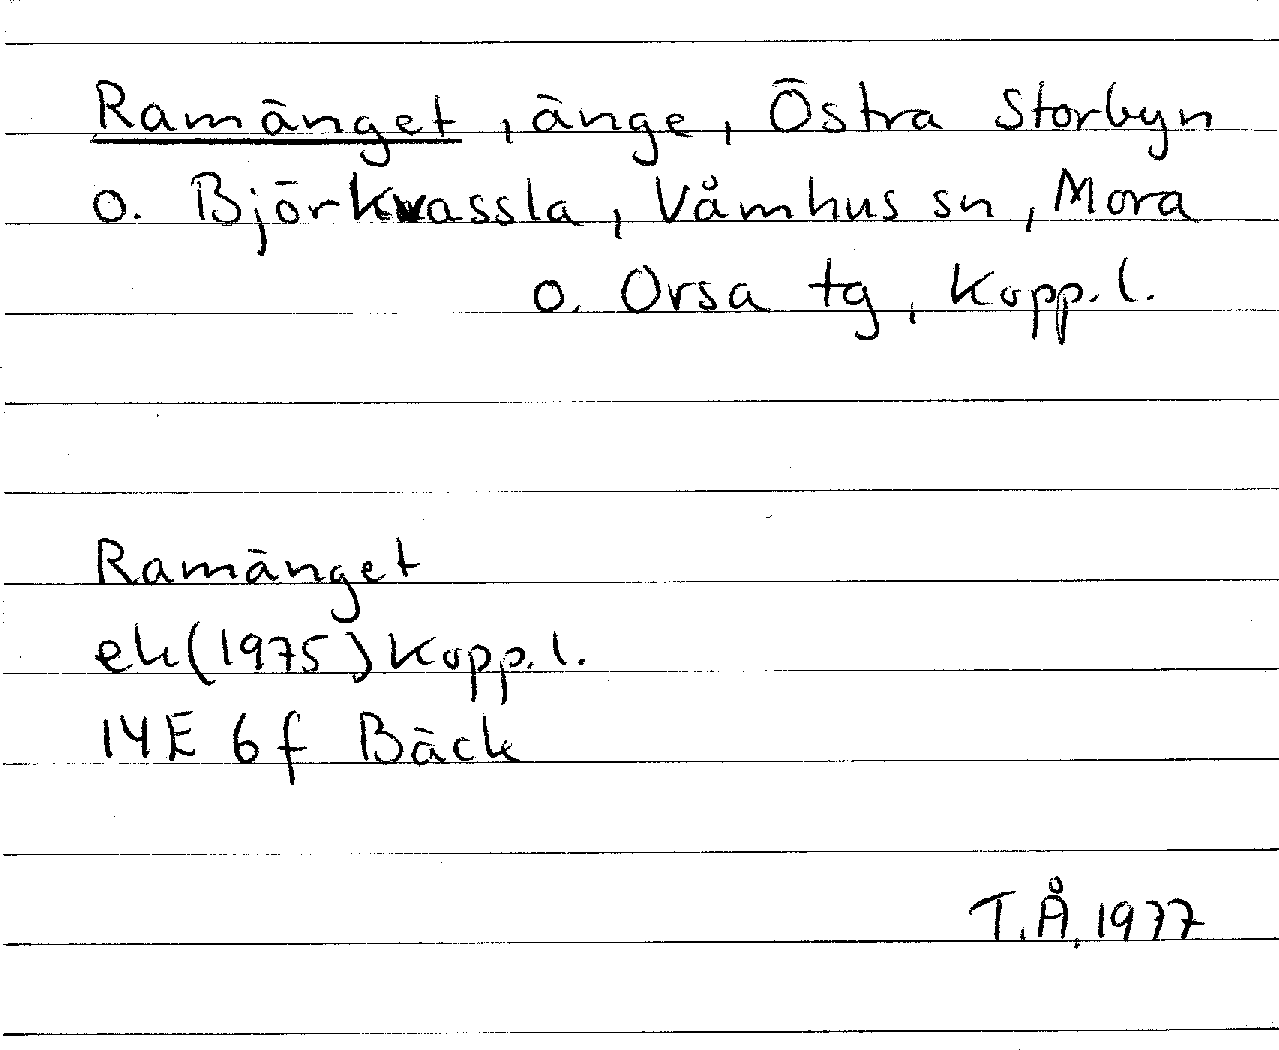 Ramänget, änge, Östra Storbyn
o. Björkvassla, Våmhus sn, Mora
o. Orsa tg, Kopp. l.
Ramänget
ek (1975) Kopp. l.
14E 6f Bäck
T.Å. 1977